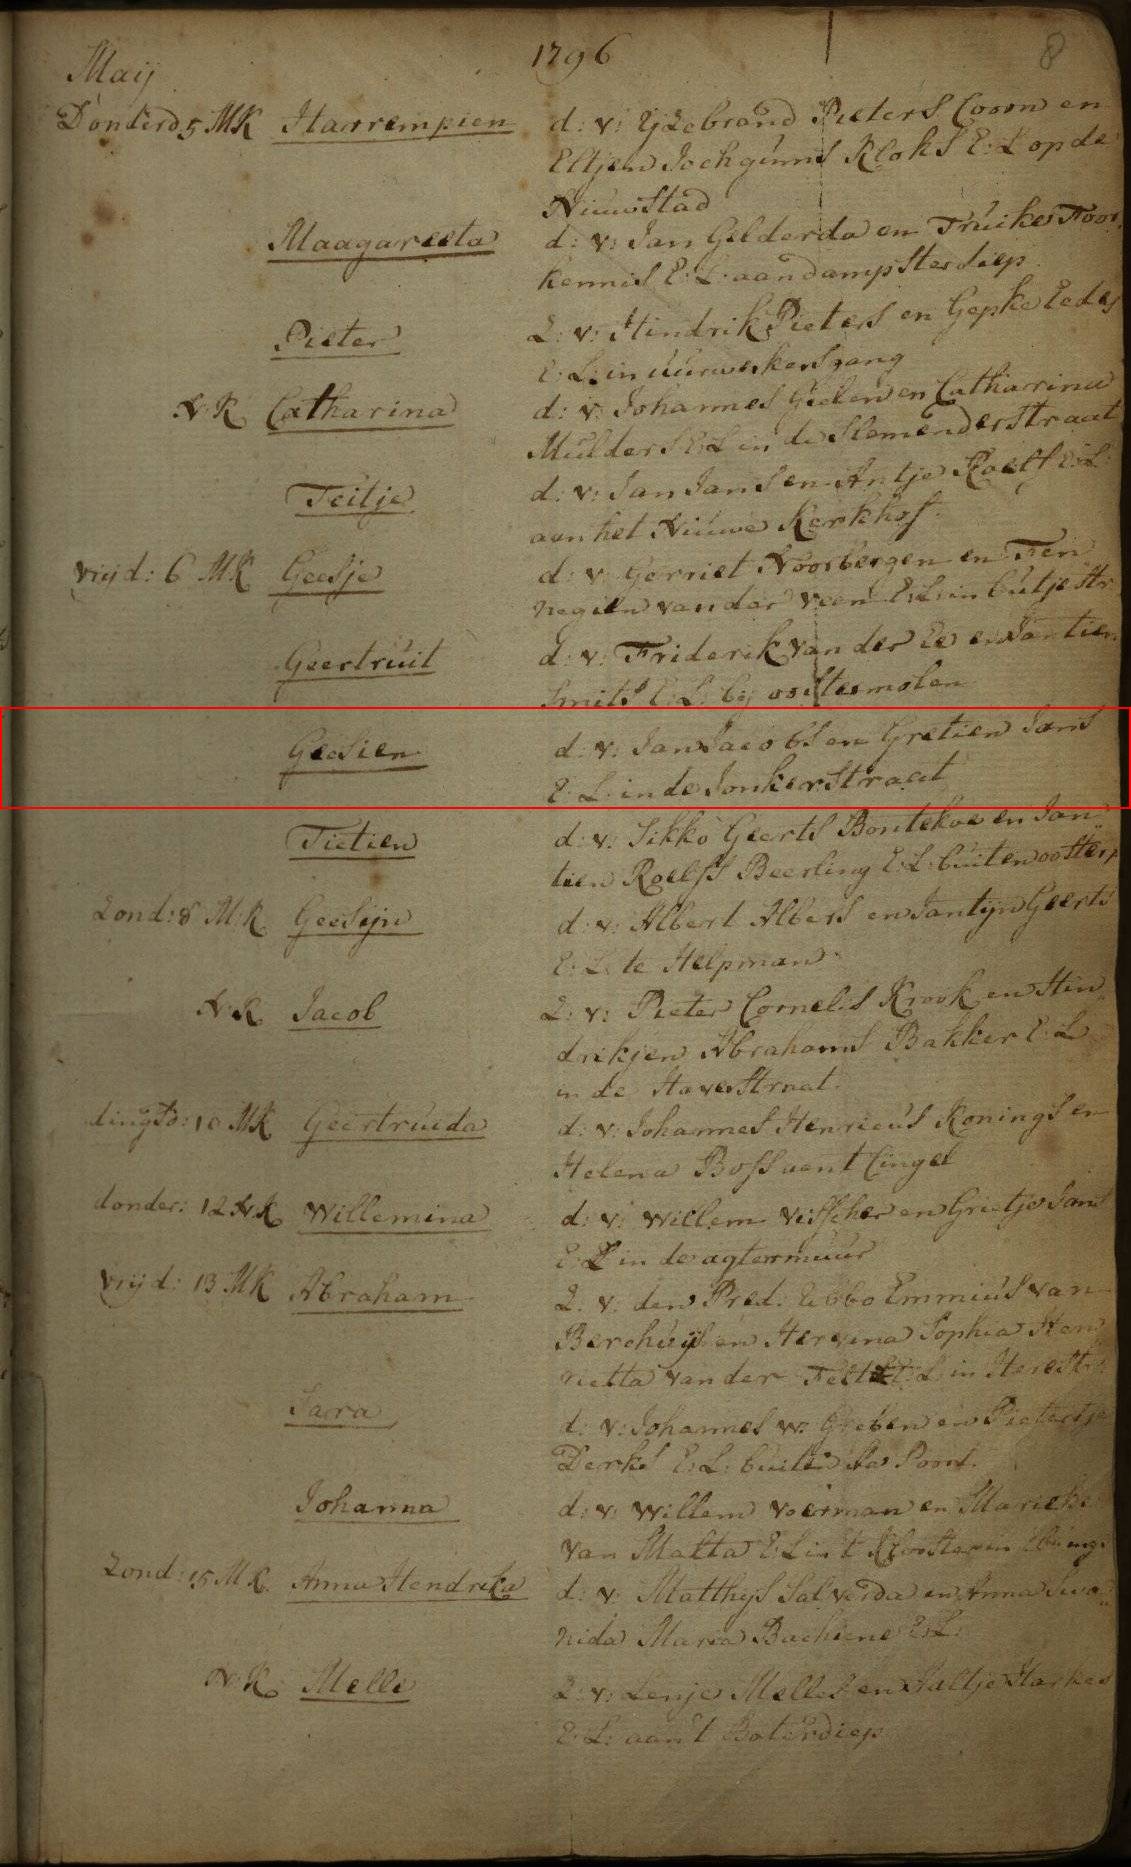 Maij 1796 8
Donderd 5 MK Harrempien d: v: Ydebrand Pieters Coorn en
Eltjen Jochgums Kloks E: L op de
Nieuwstad
Maagareeta d: v: Jan Gelderda en Truike Foor
kennis E: L: aan dampster diep
Pieter Z: v: Hindrik Pieters en Gepke Eedes
E: L: in uurwerkersgang
N: K Catharina d: v: Johannes Gielen en Catharrina
Mulders E: L in de straat
Teitje d: v: Jan Jans en Antje Roelfs E: L:
aan het Nieuwe Kerkhof
vrijd: 6 MK Geesje d: v: Gerriet Noorbergen en Fen
negien van der veen E: L: in butje str:
Geertruit d: v: Friderik van der Ee en Jantien
Smits E: L: bij oostermolen
Geesien d: v: Jan Jacobs en Gretien Jans
E: L: in de Jonkerstraat
Tietien d: v: Sikko Geerts Bontekoe en Jan
tien Roelfs Beerling E: L: buiten oosterp
Zond: 8 M: K Geesijn d: v: Albert Albers en Jantijn Geerts
E: L: te Helpman
N: K Jacob Z: v: Pieter Cornelis Krook en Hin
drikjen Abrahams Bakker E: L
in de Haverstraat
dingsd: 10 MK Geertruida d: v: Johannes Henricus Konings en
Helena Boss aent Cingel
donder: 12 N K Willemina d: v: Willem Visscher en Grietje Jans
E: L in de agtermuur
vrijd: 13 MK Abraham Z: v: den Pred: Ebbo Emmius van
Berchuijs en Hervina Sophia Hen
netta van der Felts E: L in Herestr:
Sara d: v: Johannes w: Greben en Pietertje
Derks E: L: buiten Poort
Johanna d: v: Willem voerman en Marieke
van Malta E: L in t Klooster in
Zond: 15 M K. Anna Hendrika d: v: Matthys Salverda en Anna
nida Maria Bachiene E: L:
N: K Melle Z: v: Lenje Melles en Aaltje Harkes
E: L: aan 't Boterdiep